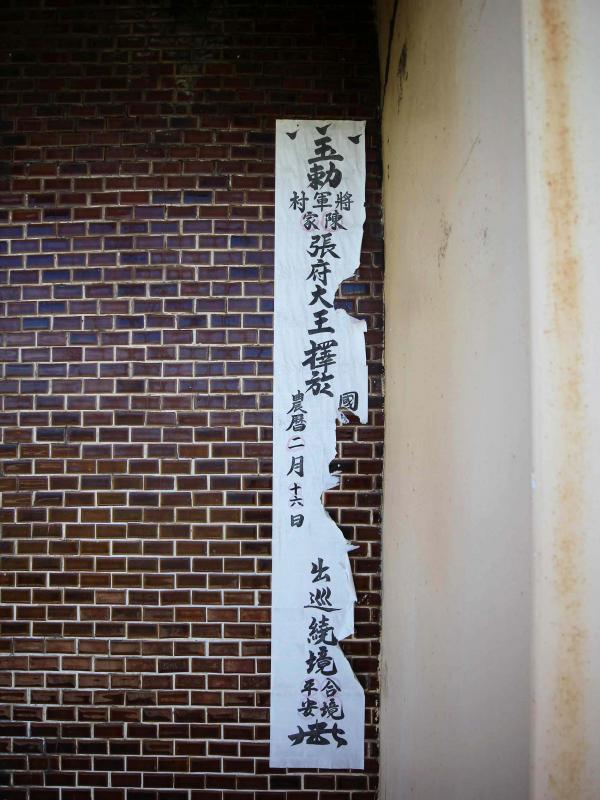 玉勅
將軍村
陳家
張府大王擇於
國
農暦二月十六日
出巡繞境
合境
平安